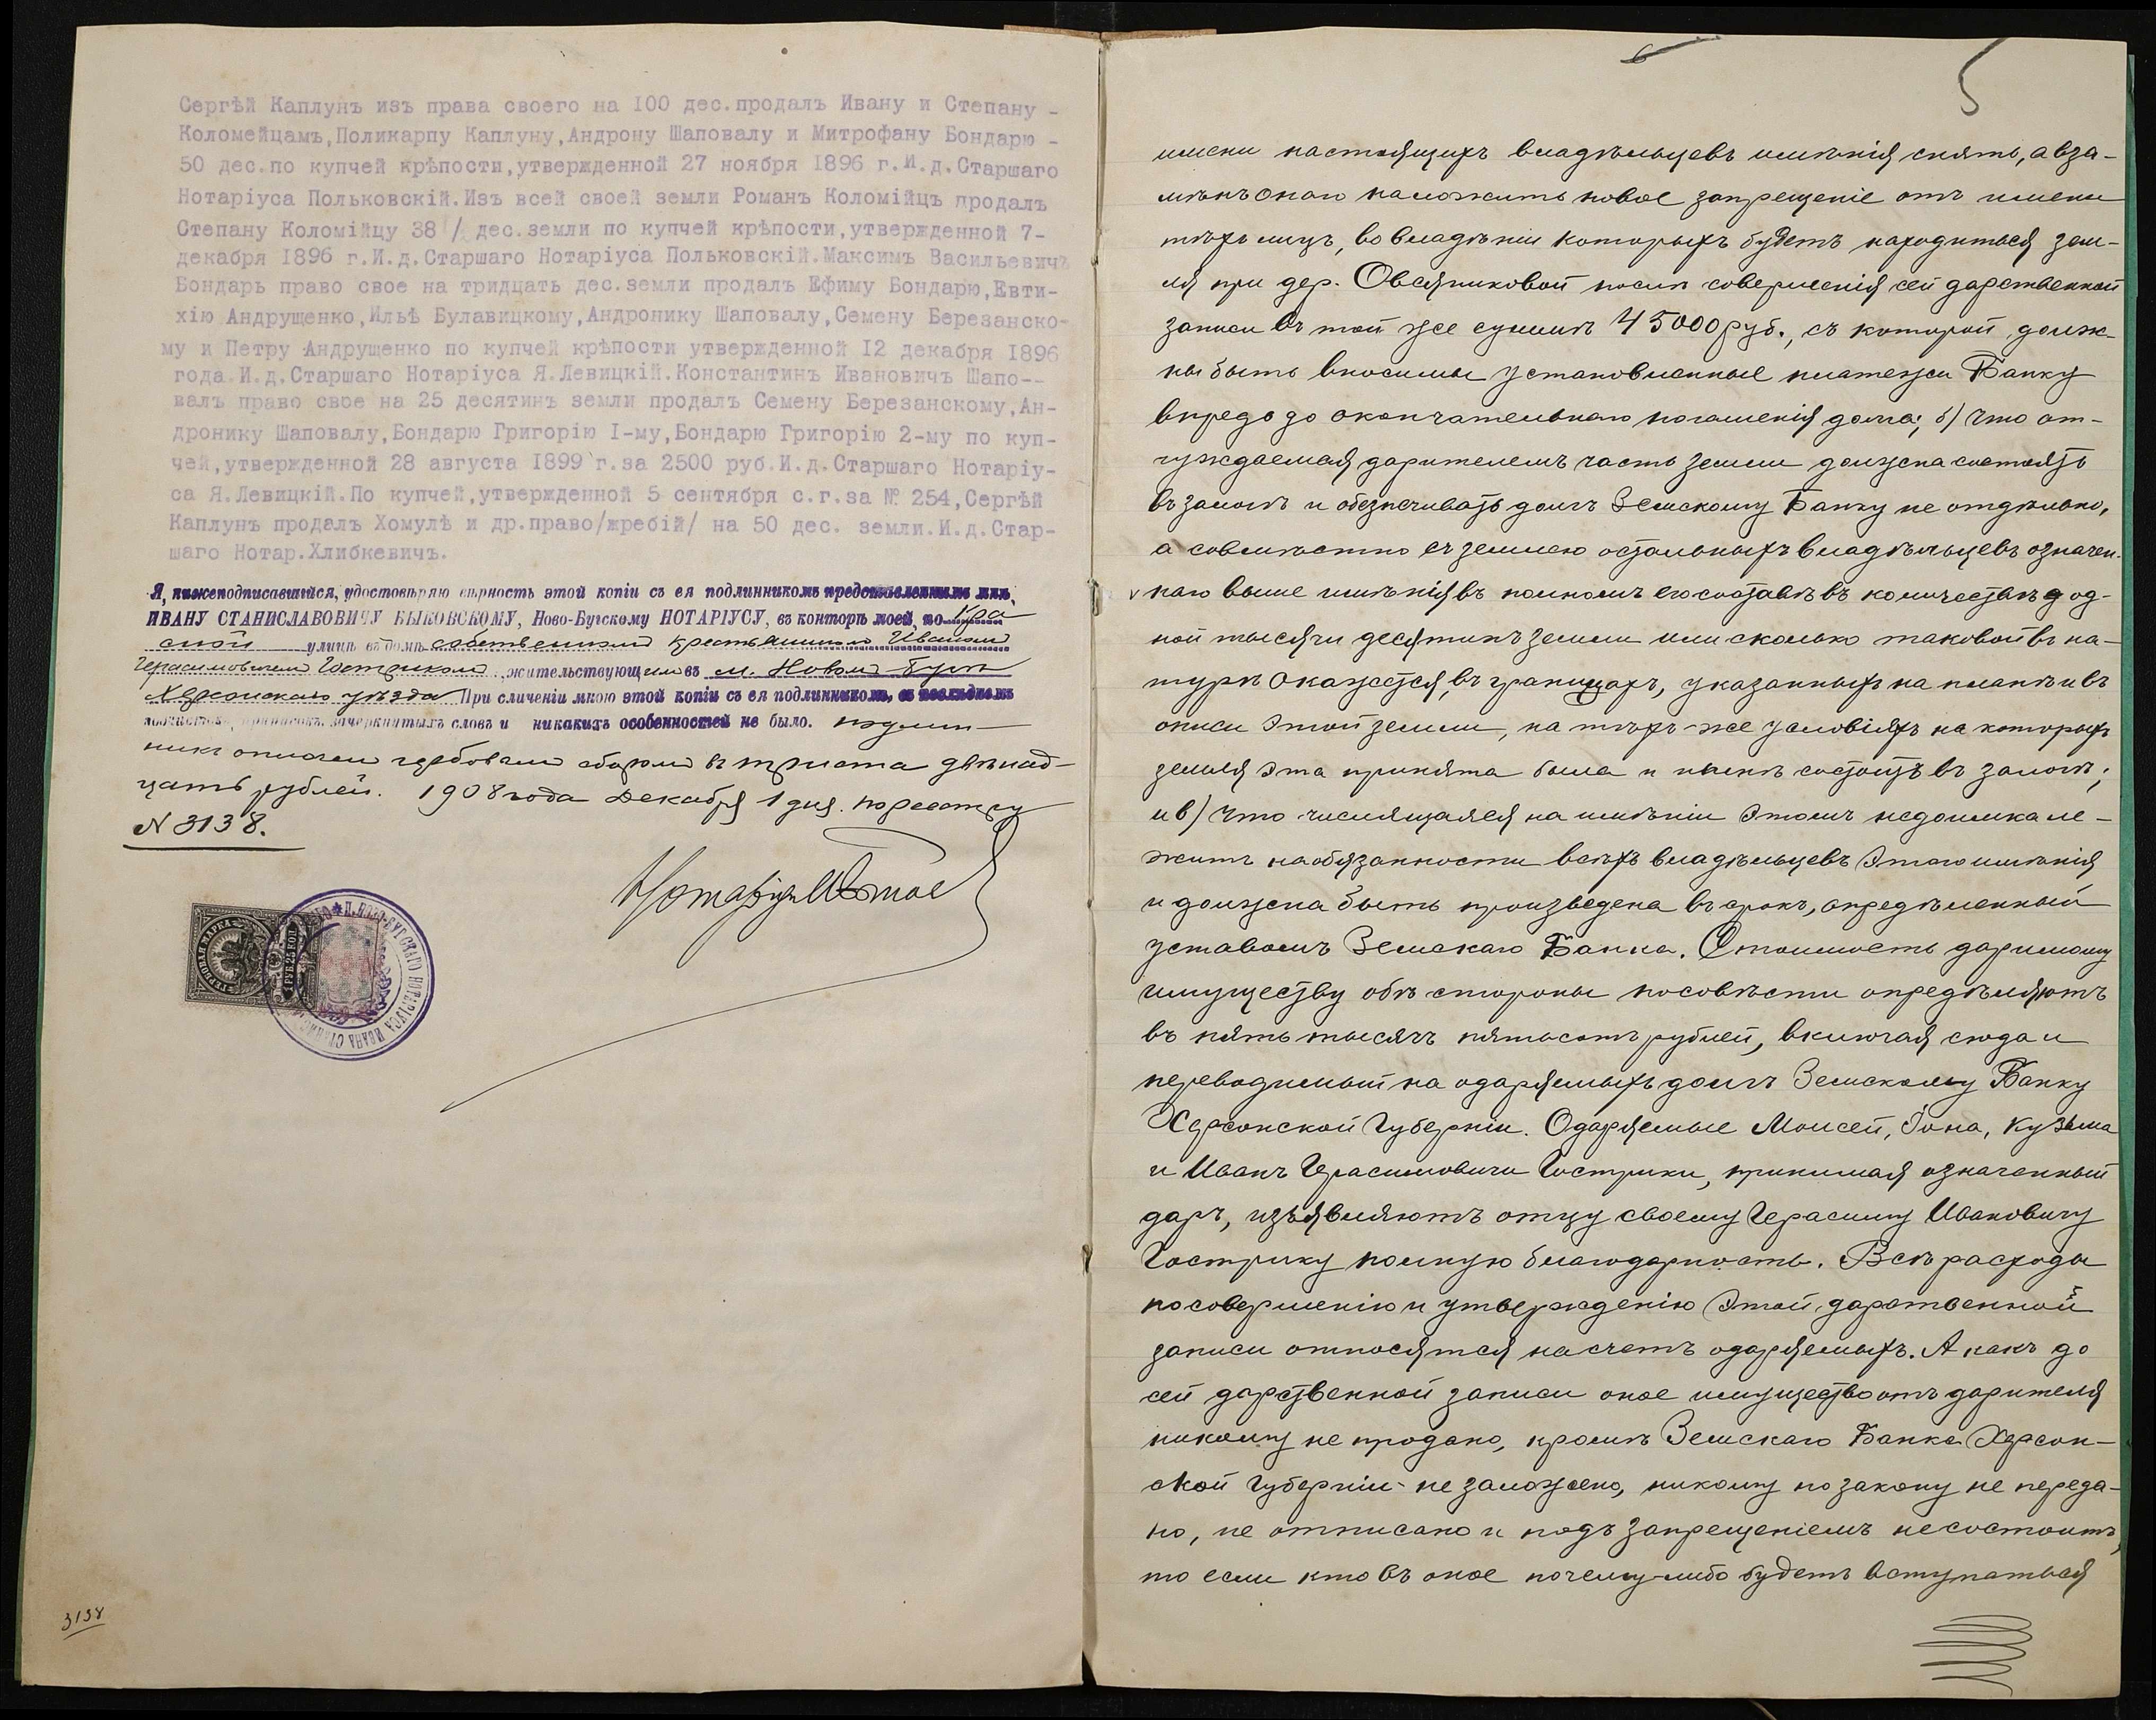 Сергѣй Каплунъ изъ права своего на 100 дес.продалъ Ивану и Степану -
Коломейцамъ,Поликарпу Каплуну,Андрону Шаповалу и Митрофану Бондарю -
50 дес.по купчей крѣпости,утвержденной 27 ноября 1896 г.И.д.Старшаго
Нотаріуса Польковскій.Изъ всей своей земли Романъ Коломійцъ продалъ
Степану Коломійцу 38 / дес.земли по купчей крѣпости,утвержденной 7-
декабря 1896 г.И.д.Старшаго Нотаріуса Польковскій.Максимъ Васильевичъ
Бондарь право свое на тридцать дес.земли продалъ Ефиму Бондарю,Евти-
хію Андрущенко,Ильѣ Булавицкому,Андронику Шаповалу,Семену Березанско-
му и Петру Андрущенко по купчей крѣпости утвержденной 12 декабря 1896
года.И.д.Старшаго Нотаріуса Я.Левицкій.Константинъ Ивановичъ Шапо--
валъ право свое на 25 десятинъ земли продалъ Семену Березанскому,Ан-
дронику Шаповалу,Бондарю Григорію I-му,Бондарю Григорію 2-му по куп-
чей,утвержденной 28 августа 1899 г.за 2500 руб.И.д.Старшаго Нотаріу-
са Я.Левицкій.По купчей,утвержденной 5 сентября с.г.за № 254,Сергѣй
Каплунъ продалъ Хомулѣ и др.право/жребій/ на 50 дес. земли.И.д.Стар-
шаго Нотар.Хлибкевичъ.
Я, нижеподписавшійся, удостовѣряю вѣрность этой копіи съ ея подлинникомъ представленнымъ мнѣ,
ИВАНУ СТАНИСЛАВОВИЧУ БЫКОВСКОМУ, Ново-Бугскому НОТАРІУСУ, въ конторѣ моей, по Кра
сной улицѣ въ домѣ собственномъ крестьяниномъ Иваномъ
Герасимовичемъ Гострикомъ, жительствующимъ въ м. Новомъ Бугѣ
Херсонскаго уѣзда При сличеніи мною этой копіи съ ея подлинникомъ, въ послѣднемъ
подчистокъ, приписокъ, зачеркнутыхъ словъ и никакихъ особенностей не было. подлин-
никъ оплаченъ гербовымъ сборомъ въ триста двѣнад-
цать рублей. 1908 года Декабря 1 дня. по реестру
N 3138.
Нотаріусъ
ГЕРБОВАЯ МАРКА
1 РУБ 25 КОП
3138
5
имени настоящихъ владѣльцевъ имѣнія снять, а вза-
мѣнъ онаго наложить новое запрещеніе отъ имени
тѣхъ лицъ, во владѣніи которыхъ будетъ находиться зем-
ля при дер. Овсяниковой послѣ совершенія сей дарственной
записи въ той же суммѣ 45000 руб., съ которой долж-
ны быть вносимы установленные платежи Банку
впредь до окончательнаго погашенія долга; б) Что от-
чуждаемая дарителемъ часть земли должна состоять
въ залогѣ и обезпечивать долгъ Земскому Банку не отдѣльно,
а совмѣстно съ землею остальныхъ владѣльцевъ означен-
наго выше имѣнія въ полномъ его составѣ въ количествѣ од-
ной тысячи десятинъ земли или сколько таковой въ на-
турѣ окажется, въ границахъ, указанныхъ на планѣ и въ
описи этой земли, на тѣхъ-же условіяхъ на которыхъ
земля эта принята была и нынѣ состоитъ въ залогѣ;
и в) Что числящаяся на имѣніи этомъ недоимка ле-
житъ на обязанности всѣхъ владѣльцевъ этого имѣнія
и должна быть произведена въ срокъ, опредѣленный
уставомъ Земскаго Банка. Стоимость даримому
имуществу обѣ стороны по совѣсти опредѣляютъ
въ пять тысячъ пятьсотъ рублей, включая сюда и
переводимый на одаряемыхъ долгъ Земскому Банку
Херсонской Губерніи. Одаряемые Моисей, Іона, Кузьма
и Иванъ Герасимовичи Гострики, принимая означенный
даръ, изъявляютъ отцу своему Герасиму Ивановичу
Гострику полную благодарность. Всѣ расходы
по совершенію и утвержденію этой дарственной
записи относятся на счетъ одаряемыхъ. А какъ до
сей дарственной записи оное имущество отъ дарителя
никому не продано, кромѣ Земскаго Банка Херсон-
ской Губерніи не заложено, никому по закону не переда-
но, не отписано и подъ запрещеніемъ не состоитъ,
то если кто въ оное почему-либо будетъ вступаться